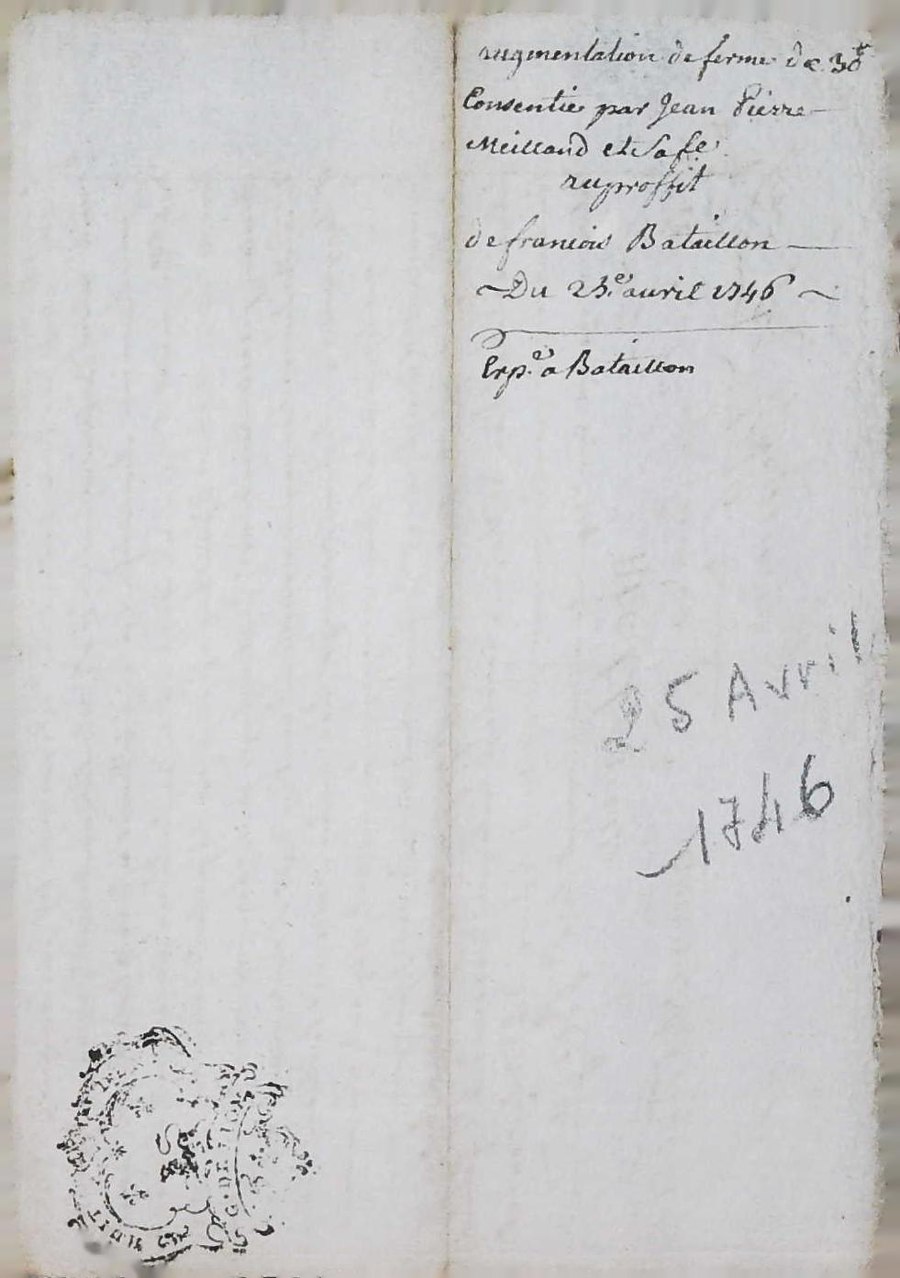 augmentation de ferme de 30#
Consentie par Jean Pierre
Meilland et Sa fe
au proffit
de francois Bataillon
Du 23e. avril 1746
Exp.e a Bataillon
25 Avril
1746